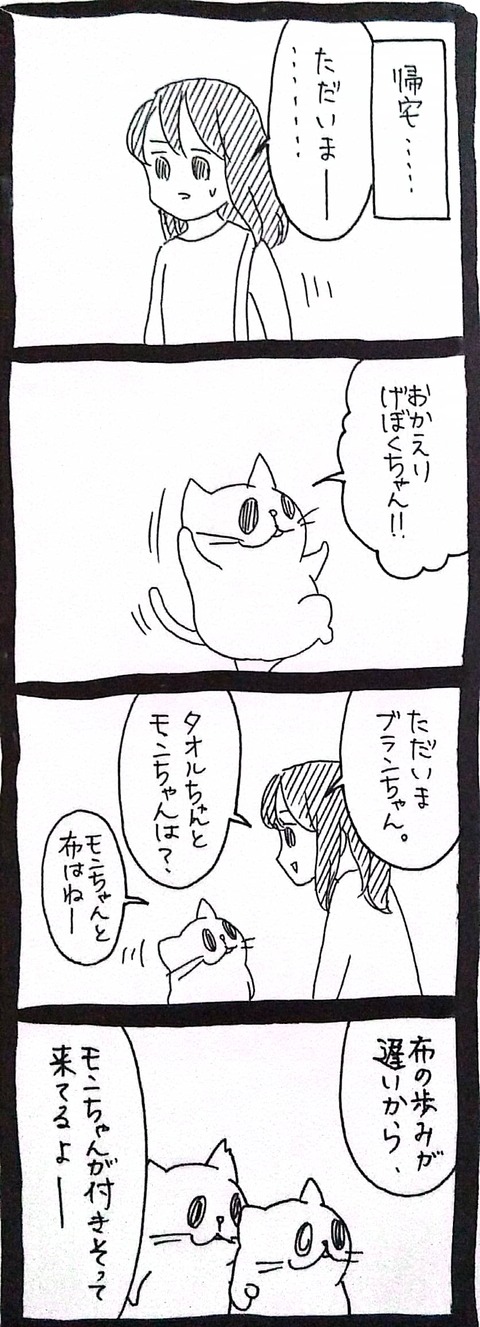 帰宅……
ただいまー
………
おかえり
げぼくちゃん!!
ただいま
ブランちゃん。
タオルちゃんと
モンちゃんは?
モンちゃんと
布はねー
布の歩みが
遅いから、
モンちゃんが付きそって
来てるよー